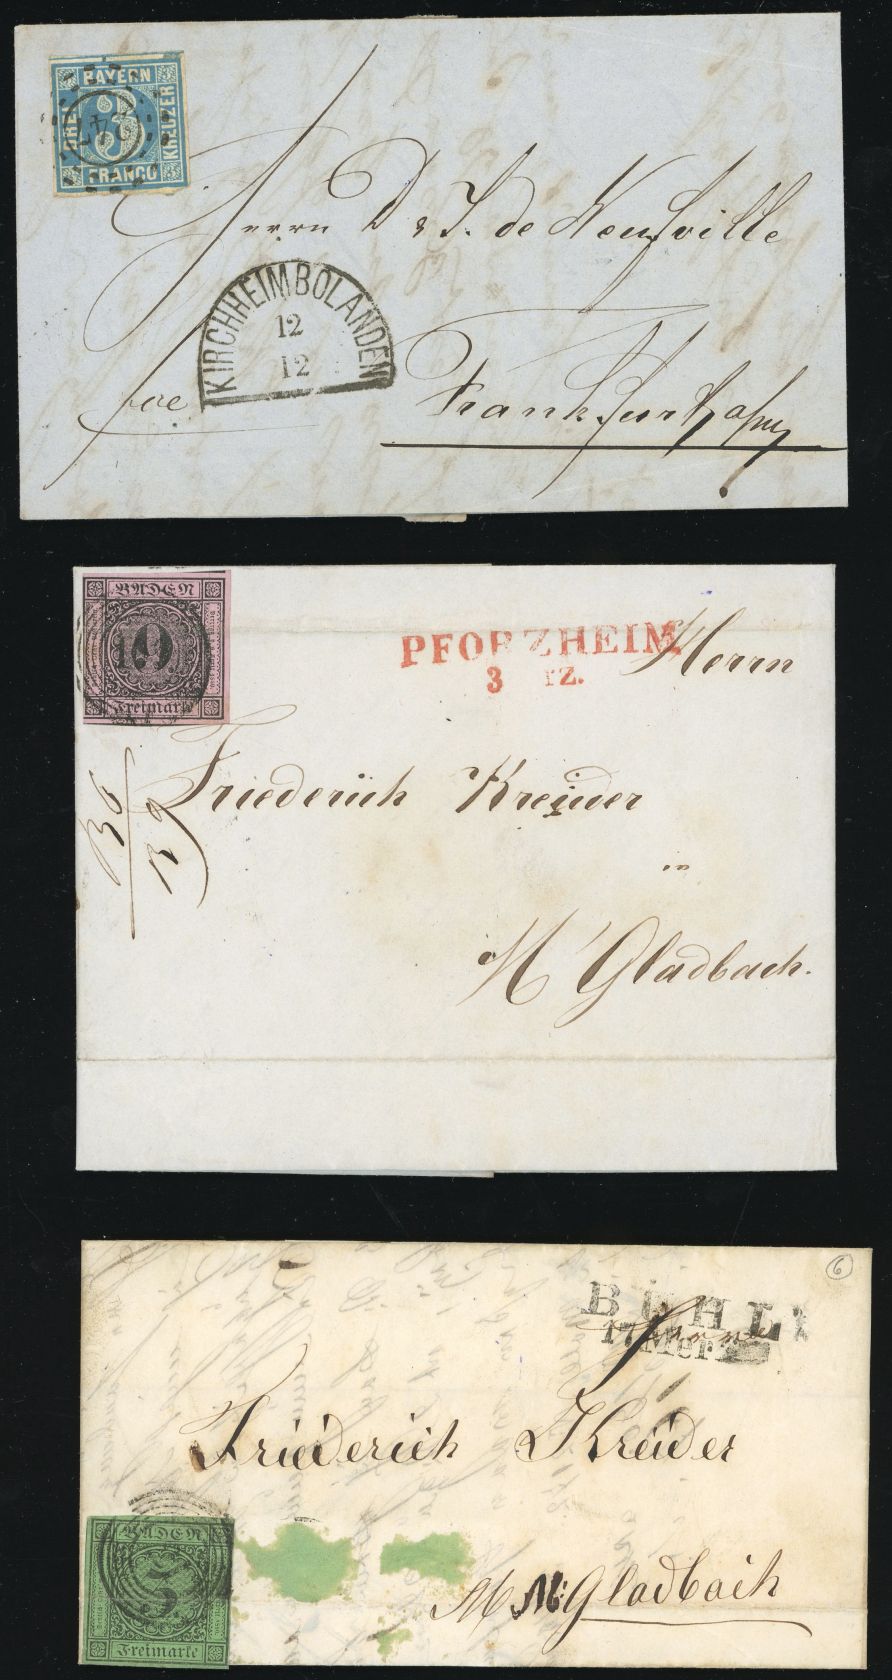 BAYERN
DREI
3
KREUZER
FRANCO
247
Herrn D & J. de Neufville
KIRCHHEIMBOLANDEN
12
12
Frankfurt a/m
BADEN
9
Freimarke
PFORZHEIM
3 rz.
Herrn
Friederich Kreider
in
M'Gladbach.
6
BÜHL
17 Merz
Herrn
Friederich Kreider
BADEN
3
Freimarke
M. Gladbach